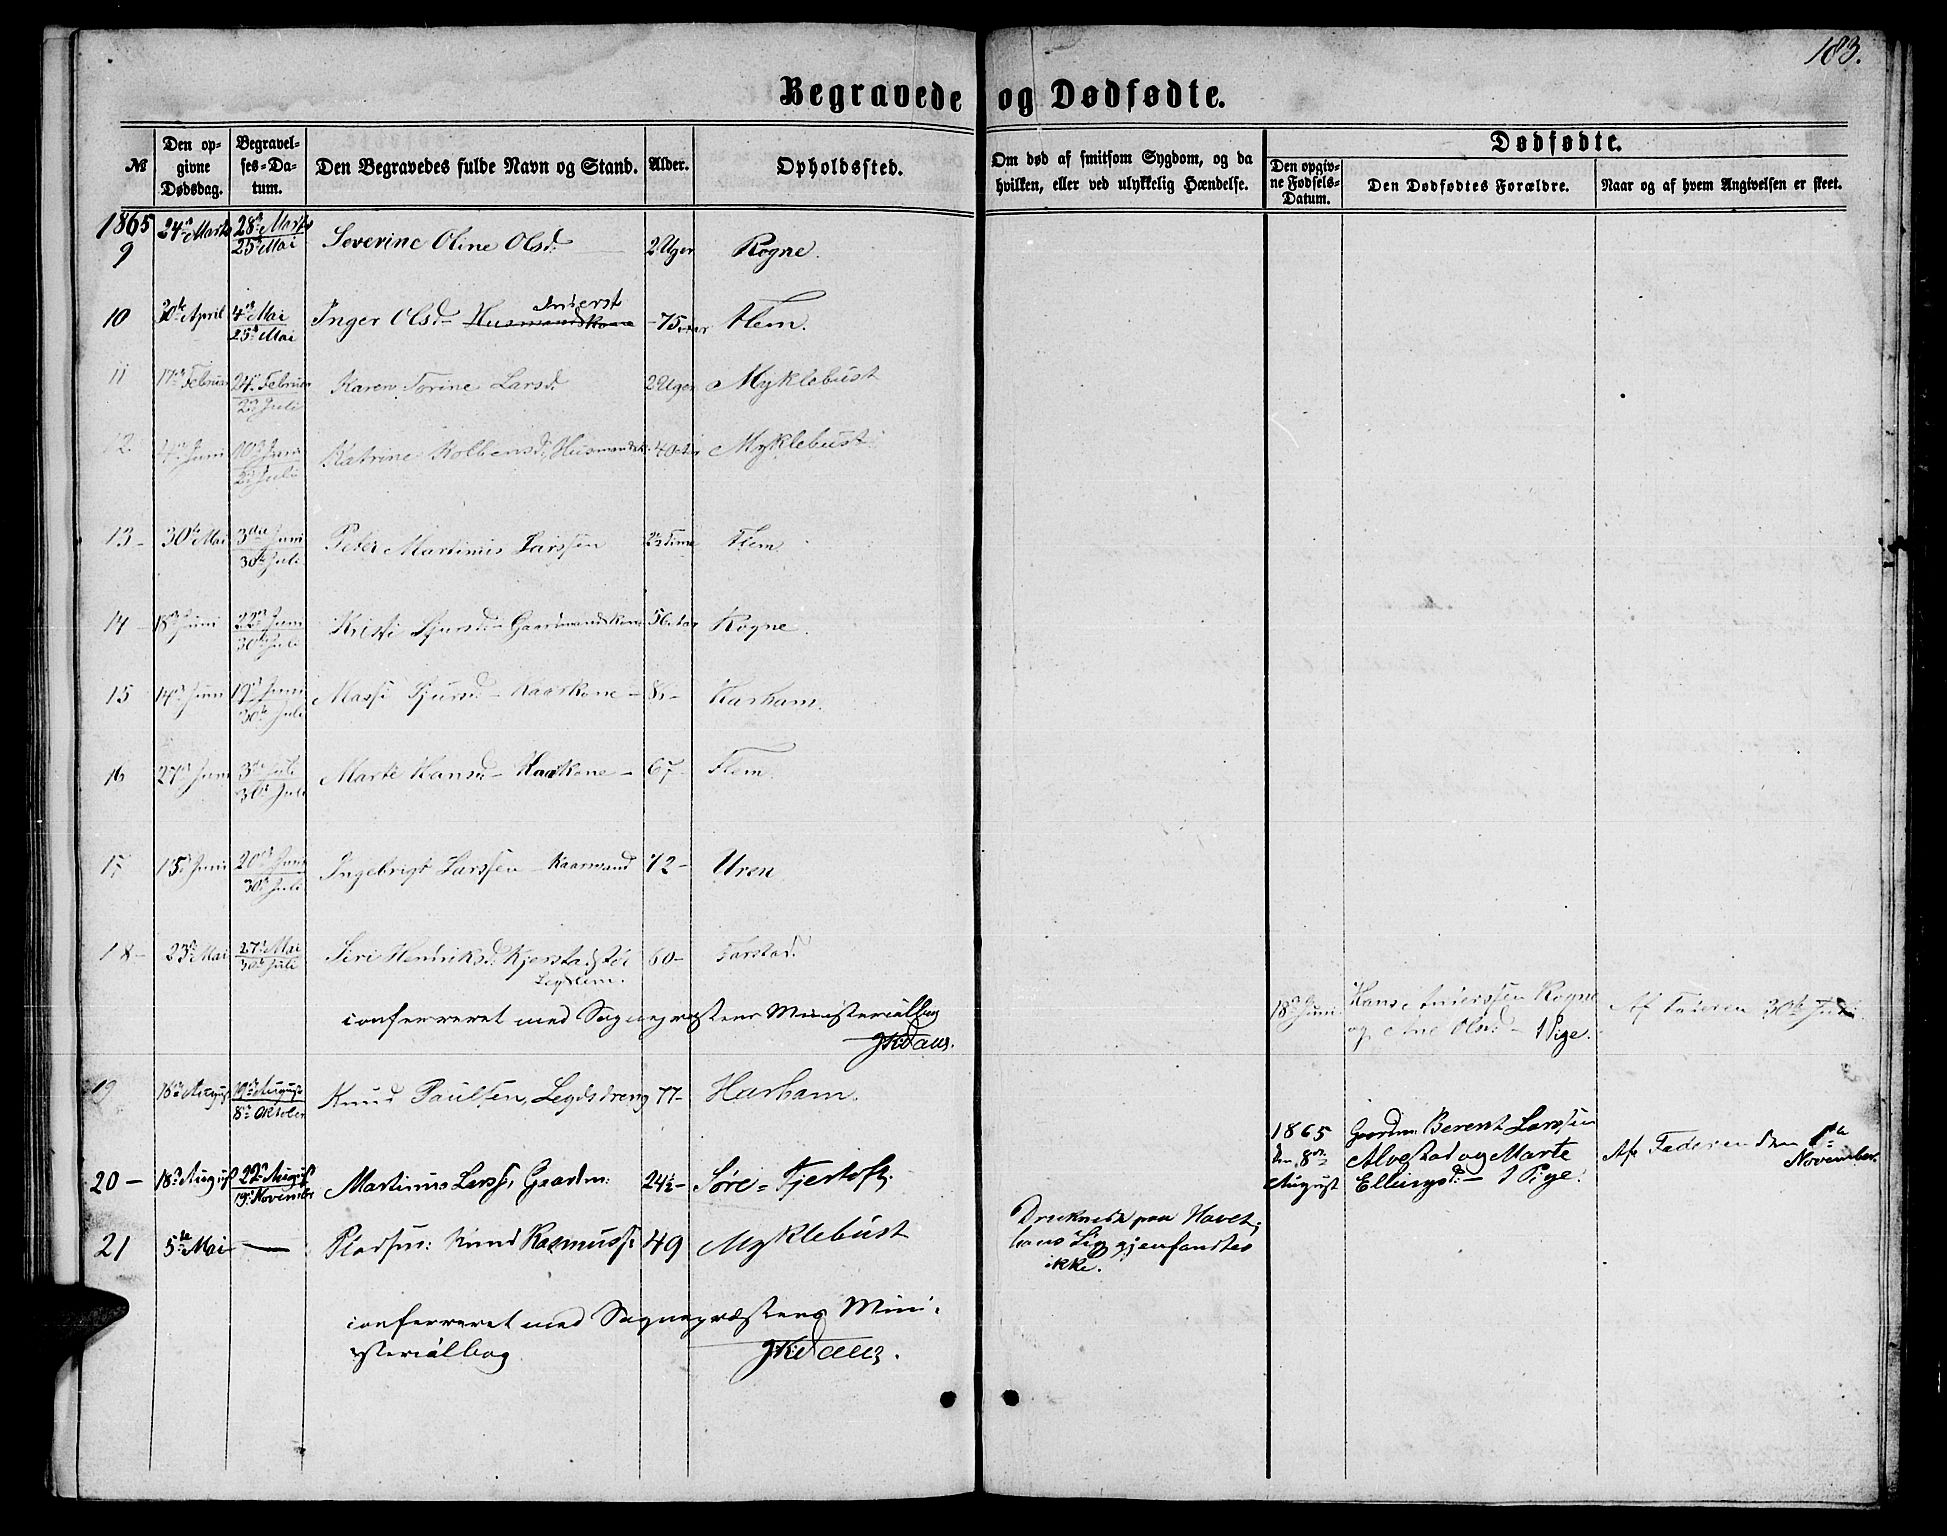 183.
Begravede og Dødfødte.
№
Den opgivne Dødsdag.
Begravelses-Datum.
Den Begravedes fulde Navn og Stand.
Alder.
Opholdssted.
Om død af smitsom Sygdom, og da hvilken, eller ved ulykkelig Hændelse.
Dødfødte.
Den opgivne Fødsels-Datum.
Den Dødfødtes Forældre.
Naar og af hvem Angivelsen er skeet.
1865
9 24de Marts 28de Marts 25de Mai Severine Oline Olsd. 2 Uger Rogne.
Inderst
10 30te April 4de Mai 25de Mai Inger Olsd. Husmandskone 75 aar Flem.
11 17de Februar 24de Februar Juli Karen Larsd 2 Uger Myklebust
12 4de Juni 10de Juni Juli Katrine Kolbensd, Husmandsk. 40 aar Myklebust
13- 30te Mai 3die Juni 30te Juli Peder Martinus Larssen Time Flem
14 18de Juni 22de Juni 30te Juli Kristi Sjursd- Gaardmandskone 56 aar Rogne.
15 14de Juni 19de Juni 30te Juli Massi Sjursd- Kaarkone - Harham.
16 27de Juni 3die Juli 30te Juli Marte Hansd- Kaarkone - 67- Flem.
17 15de Juni 20de Juni 30te Juli Ingebrigt Larssen - Kaarmand 72- Uren
18- 23de Mai 27de Mai 30te Juli Siri Henriksd. Kjerstad 60- Farstad.
Legdlem.
confereret med Sognepræstens Ministerialbog
18de Juni Hans Anderssen Rogne og Ane Olsd - 1 Pige. Af Faderen 30te Juli
19 16de August 19de August 8de Oktober Knud Paulsen, Legdsdreng 77- Harham.
1865 den 8de August Gaardm: Berent Larssen Alvestad og Marte Ellingsd: - 1 Pige. Af Faderen den 1ste November.
20- 18de August 22de August 19de November Martinus Larss, Gaardm: 24½- Søre=Fjertoft.
21 5te Mai — Pladsm: Knud Rasmuss: 49 Myklebust Druknede paa Havet; hans Lig gjenfandtes ikke.
confereret med Sognepræstens Mini-
sterialbog